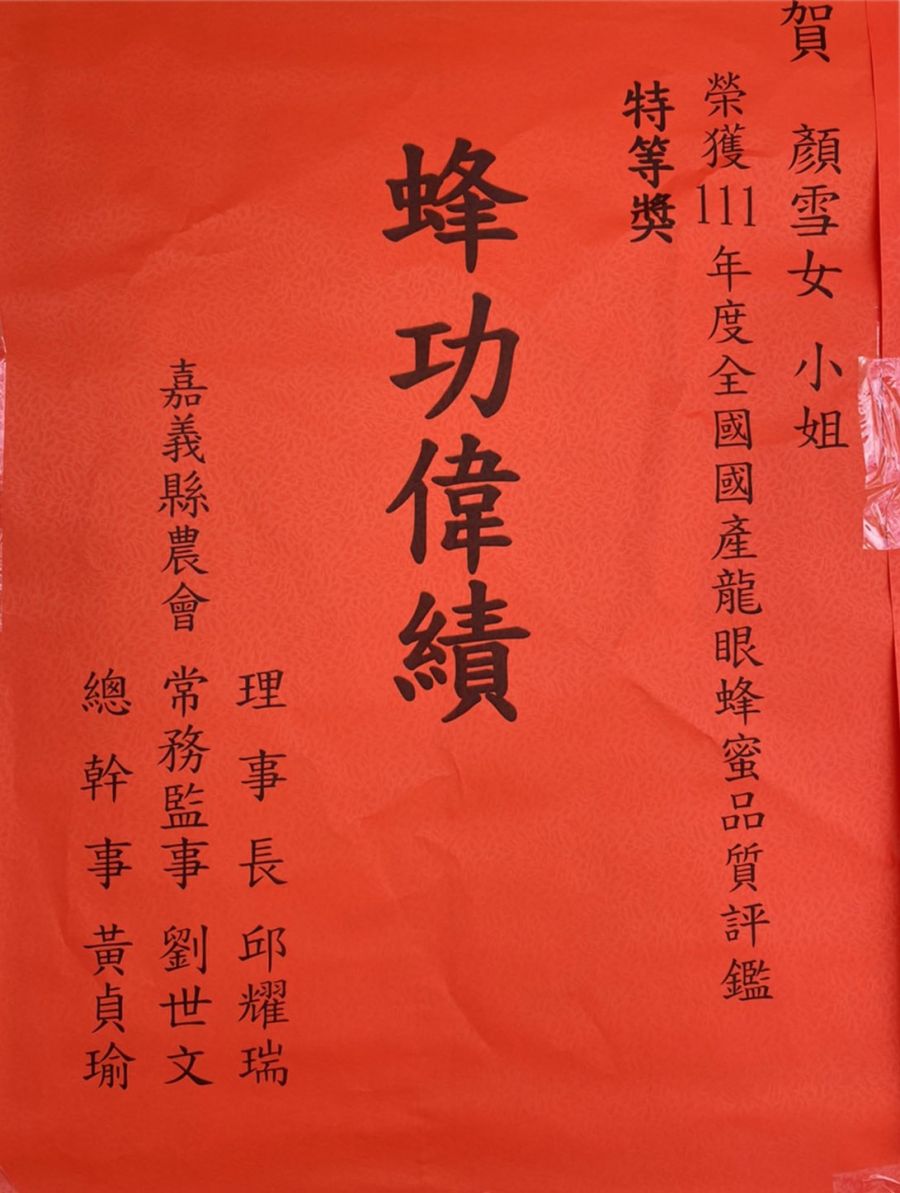 賀 顏雪女 小姐
榮獲111年度全國國產龍眼蜂蜜品質評鑑
特等獎
蜂功偉績
嘉義縣農會
理事長 邱耀瑞
常務監事 劉世文
總幹事 黃貞瑜